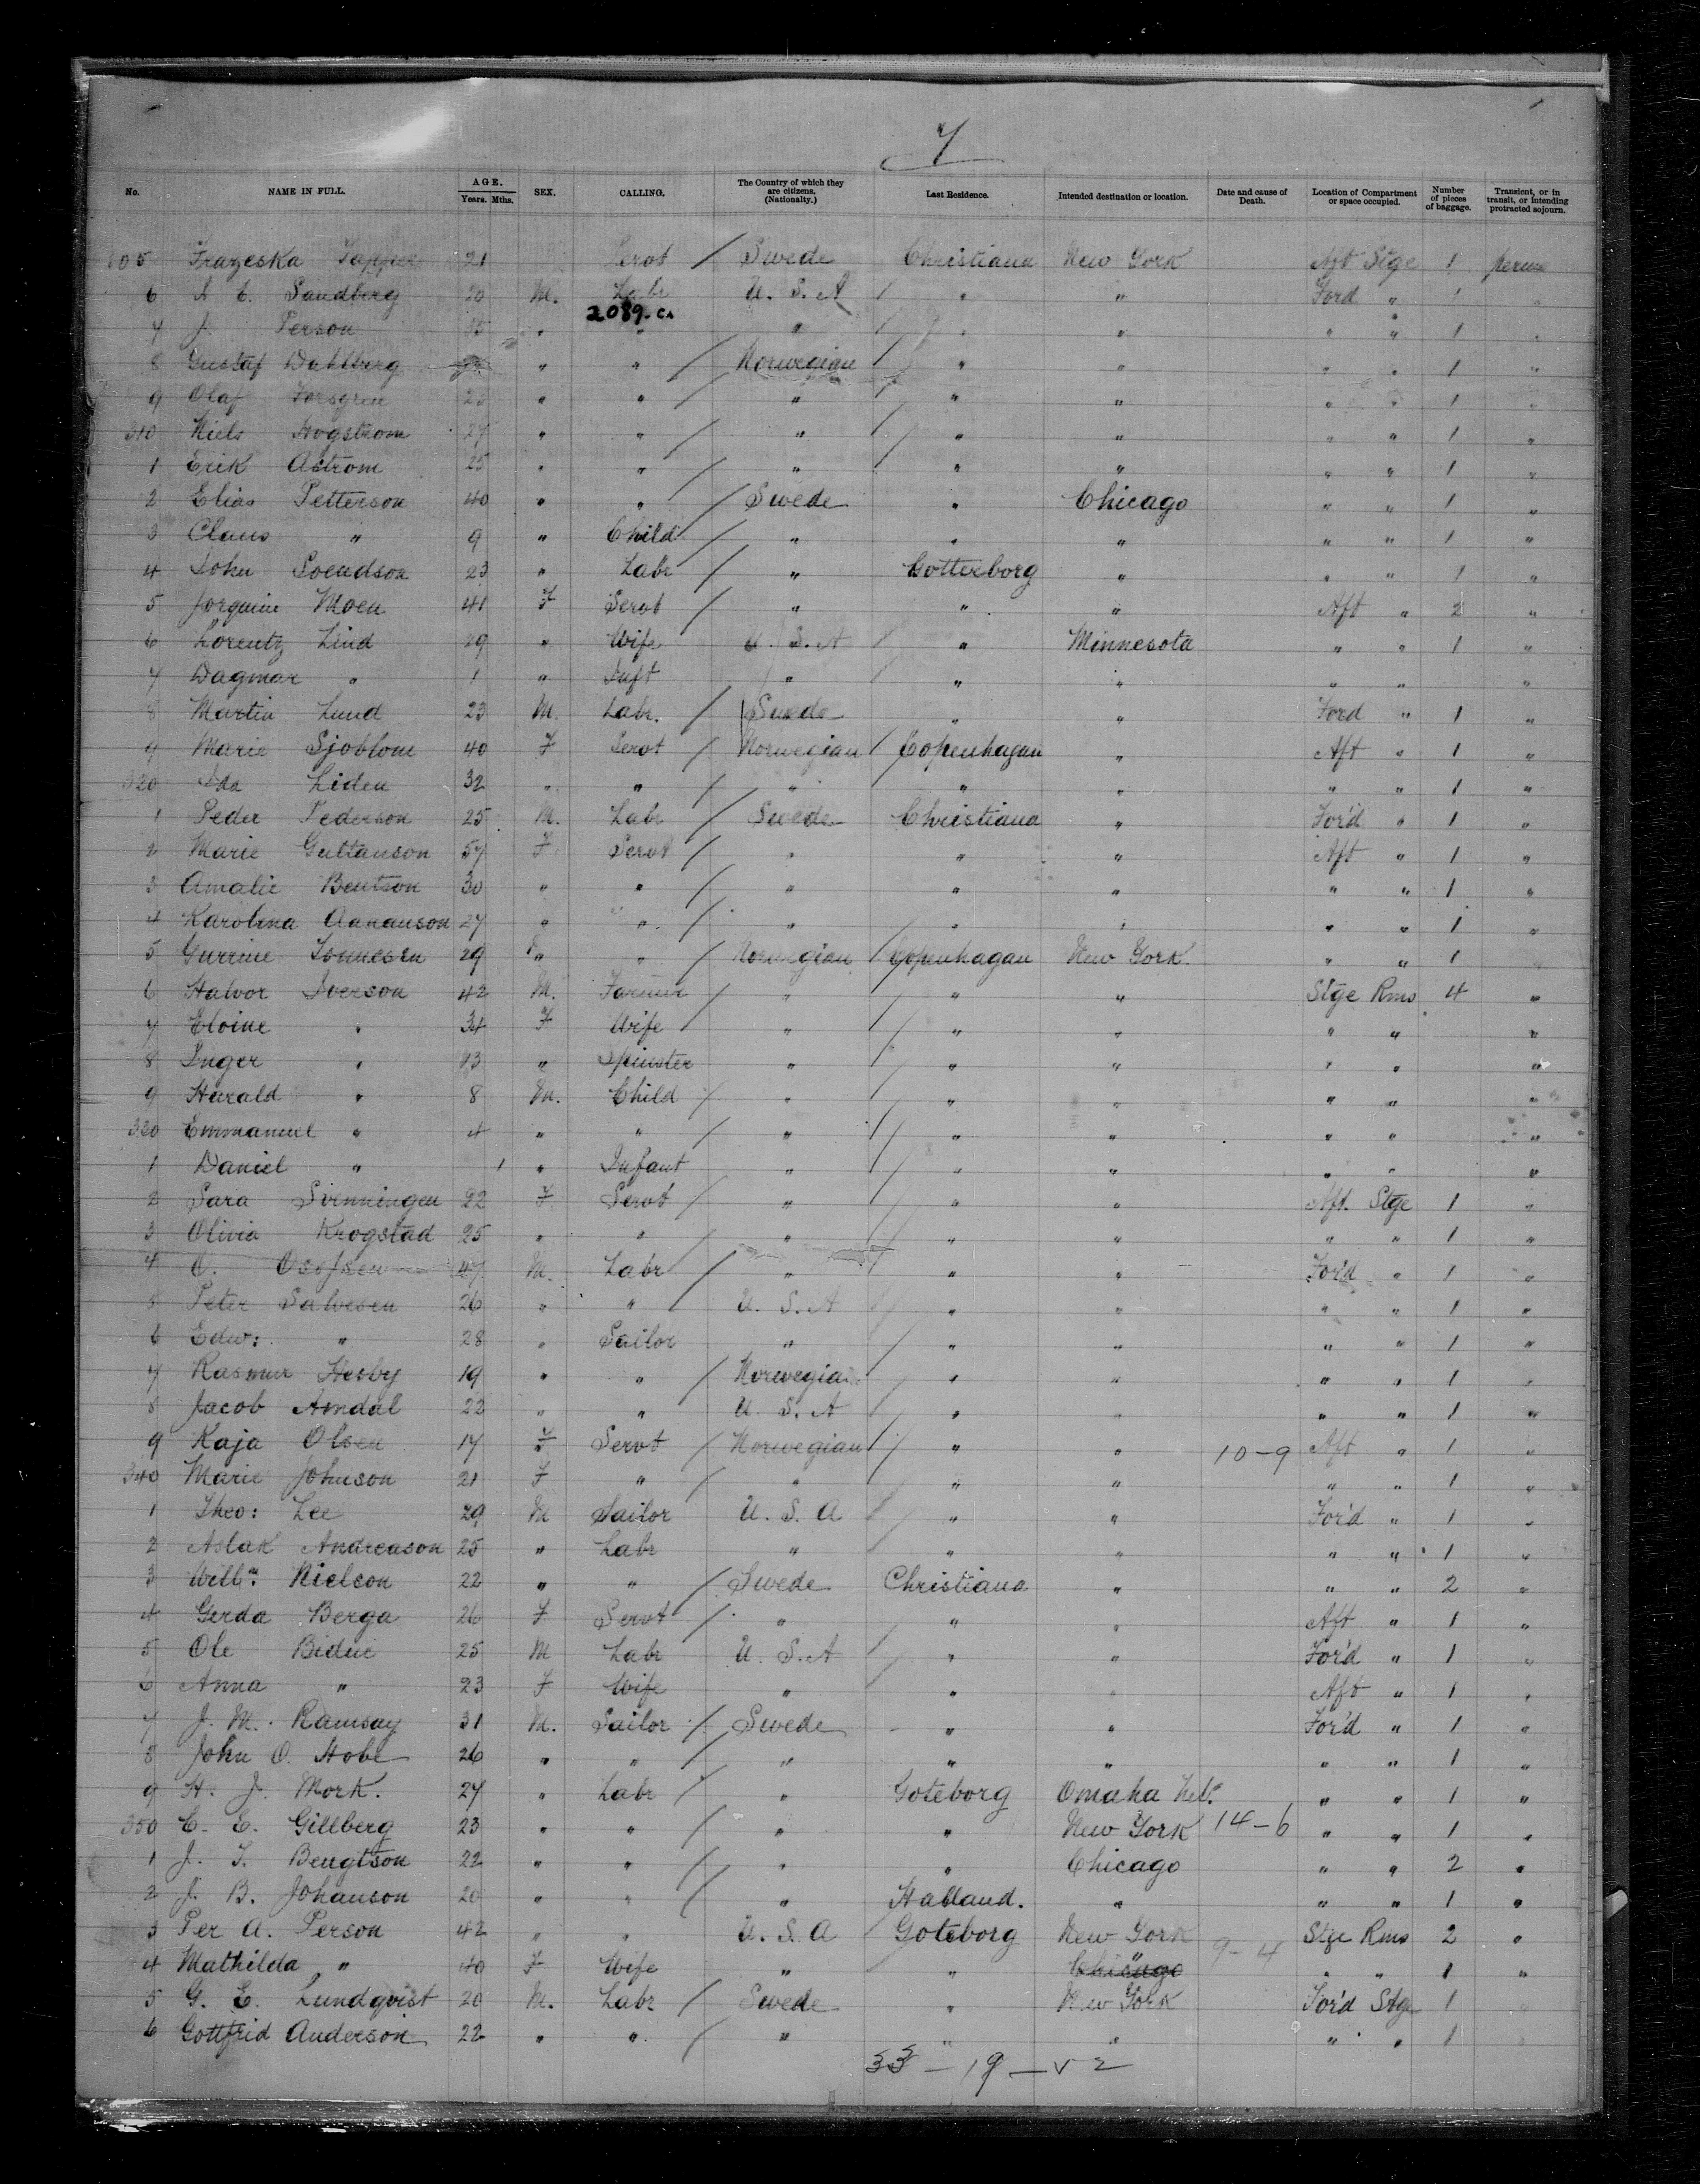 7
No. NAME IN FULL. AGE. Years. Mths. SEX. CALLING. The Country of which they are citizens. (Nationalty.) Last Residence. Intended destination or location. Date and cause of Death. Location of Compartment or space occupied. Number of pieces of baggage. Transient, or in transit, or intending protracted sojourn.
305 Frazeska 21 Servt / Swede Christiana New York Aft Stge 1
6 A E. Sandberg 20 M. Labr U. S. A / " " Ford " 1 "
2089. CA
7 J. Person 35 " " " / " " " " 1 "
8 Gustaf Dahlberg " " / Norwegian / " " " " 1 "
9 Olaf Forsgren 23 " " / " / " " " " 1 "
310 Niels Hogstrom 27 " " / " / " " " " 1 "
1 Erik Astrom 25 " " / " / " " " " 1 "
2 Elias Petterson 40 " " / Swede " Chicago " " 1 "
3 Claus " 9 " Child / " " " " " 1 "
4 John Svendson 23 " Labr / " Gotteborg " " " 1 "
5 Jorquine Moen 41 F Servt / " " " Aft " 2 "
6 Lorentz Lind 29 " Wife U. S. A / " Minnesota " " 1 "
7 Dagmar " 1 " Inft " / " " " " "
8 Martin Lund 23 M. Labr. / Swede " " Ford " 1 "
9 Marie Sjoblom 40 F Servt / Norwegian / Copenhagan " Aft " 1 "
320 Ida Liden 32 " " / " / " " " " 1 "
1 Peder Pederson 25 M. Labr / Swede Christiana " For'd " 1 "
2 Marie Guttanson 57 F Servt / " " " Aft " 1 "
3 Amalie Bentson 30 " " / " " " " " 1 "
4 Karolina Aananson 27 " " / " " " " " 1 "
5 Gurrine Tonnesen 29 " " / Norwegian / Copenhagan New York " " 1 "
6 Halvor Iverson 42 M. Farmer / " / " " Stge Rms 4 "
7 Eloine " 34 F Wife / " / " " " " "
8 Inger " 13 " Spinster " / " " " " "
9 Harald " 8 M. Child / " / " " " " "
330 Emmanuel " 4 " " / " / " " " " "
1 Daniel " 1 " Infant " / " " " " "
2 Sara Svenningen 22 F Servt / " / " " Aft. Stge 1 "
3 Olivia Krogstad 25 " " / " / " " " " 1 "
4 O. 47 M. Labr / " / " " For'd " 1 "
5 Peter Salvesen 26 " " U. S. A / " " " " 1 "
6 Edw: " 28 " Sailor " / " " " " 1 "
7 Rasmur Hesby 19 " " / Norwegian / " " " " 1 "
8 Jacob Amdal 22 " " U. S. A / " " " " 1 "
9 Kaja Olsen 17 F Servt / Norwegian / " " 10-9 Aft " 1 "
340 Marie Johnson 21 F " / " / " " " " 1 "
1 Theo: Lee 29 M Sailor U. S. A / " " For'd " 1 "
2 Aslak Andreason 25 " Labr " / " " " " 1 "
3 Willm. Nielson 22 " " / Swede Christiana " " " 2 "
4 Gerda Berga 26 F Servt / " " " Aft " 1 "
5 Ole Bidne 25 M Labr U. S. A / " " For'd " 1 "
6 Anna " 23 F Wife " / " " Aft " 1 "
7 J. M. Ramsay 31 M. Sailor / Swede " " For'd " 1 "
8 John O. Hobe 26 " " / " " " " " 1 "
9 H. J. Mork. 27 " Labr / " Goteborg Omaha Neb. " " 1 "
350 C. E. Gillberg 23 " " / " " New York 14-6 " " 1 "
1 J. T. Bengtson 22 " " / " " Chicago " " 2 "
2 J. B. Johanson 20 " " / " Halland. " " " 1 "
3 Per A. Person 42 " " U. S. A Goteborg New York Stge Rms 2 "
4 Mathilda " 40 F Wife " " Chicago 9-4 " " 1 "
5 G. E. Lundqvist 20 M. Labr / Swede " New York For'd Stge 1 "
6 Gottfrid Anderson 22 " " / " " " " " 1 "